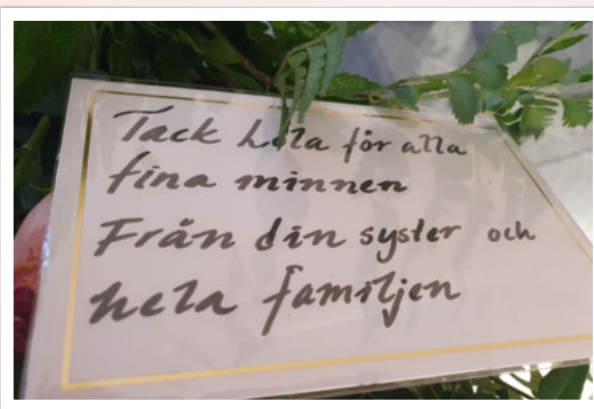 Tack för alla
fina minnen
Från din syster och
hela familjen